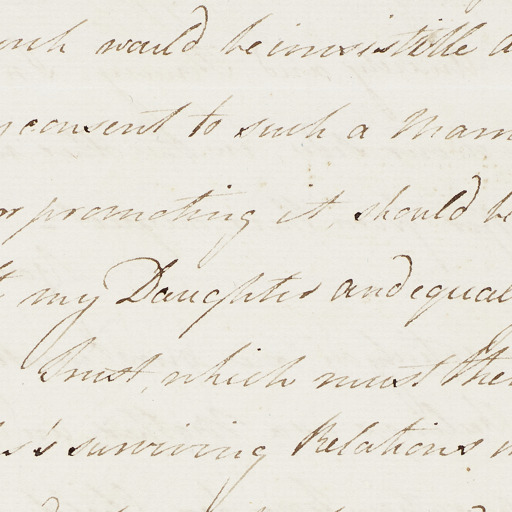 would be irresistible
consent to such a Marr
promoting it, should be
my Daughter and equal
Trust, which must the
's surviving Relations